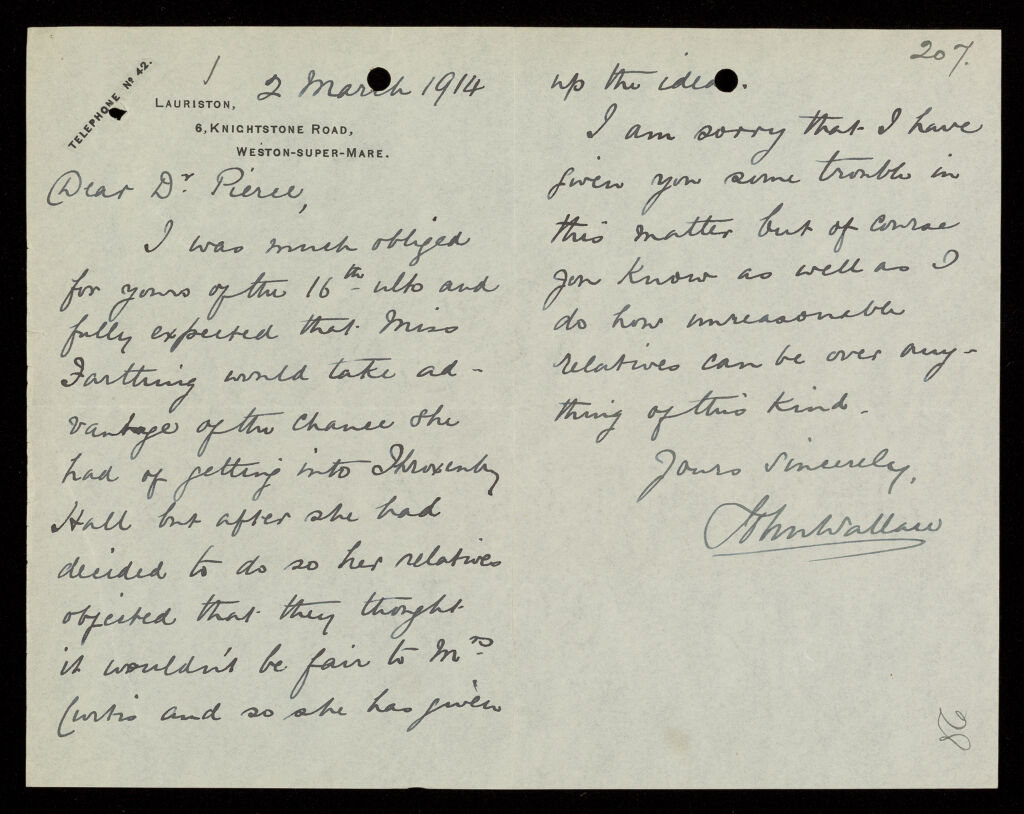 TELEPHONE Nº 42.
1
2 March 1914
LAURISTON,
6, KNIGHTSTONE ROAD,
WESTON-SUPER-MARE.
Dear Dr. Pierce,
I was much obliged
for yours of the 16th ulto and
fully expected that Miss
Farthing would take ad-
vantage of the chance she
had of getting into Throxenby
Hall but after she had
decided to do so her relatives
objected that they thought
it wouldn't be fair to Mrs
Curtis and so she has given
207.
up the idea.
I am sorry that I have
given you some trouble in
this matter but of course
you know as well as I
do how unreasonable
relatives can be over any-
thing of this kind.
Yours sincerely,
John Wallace